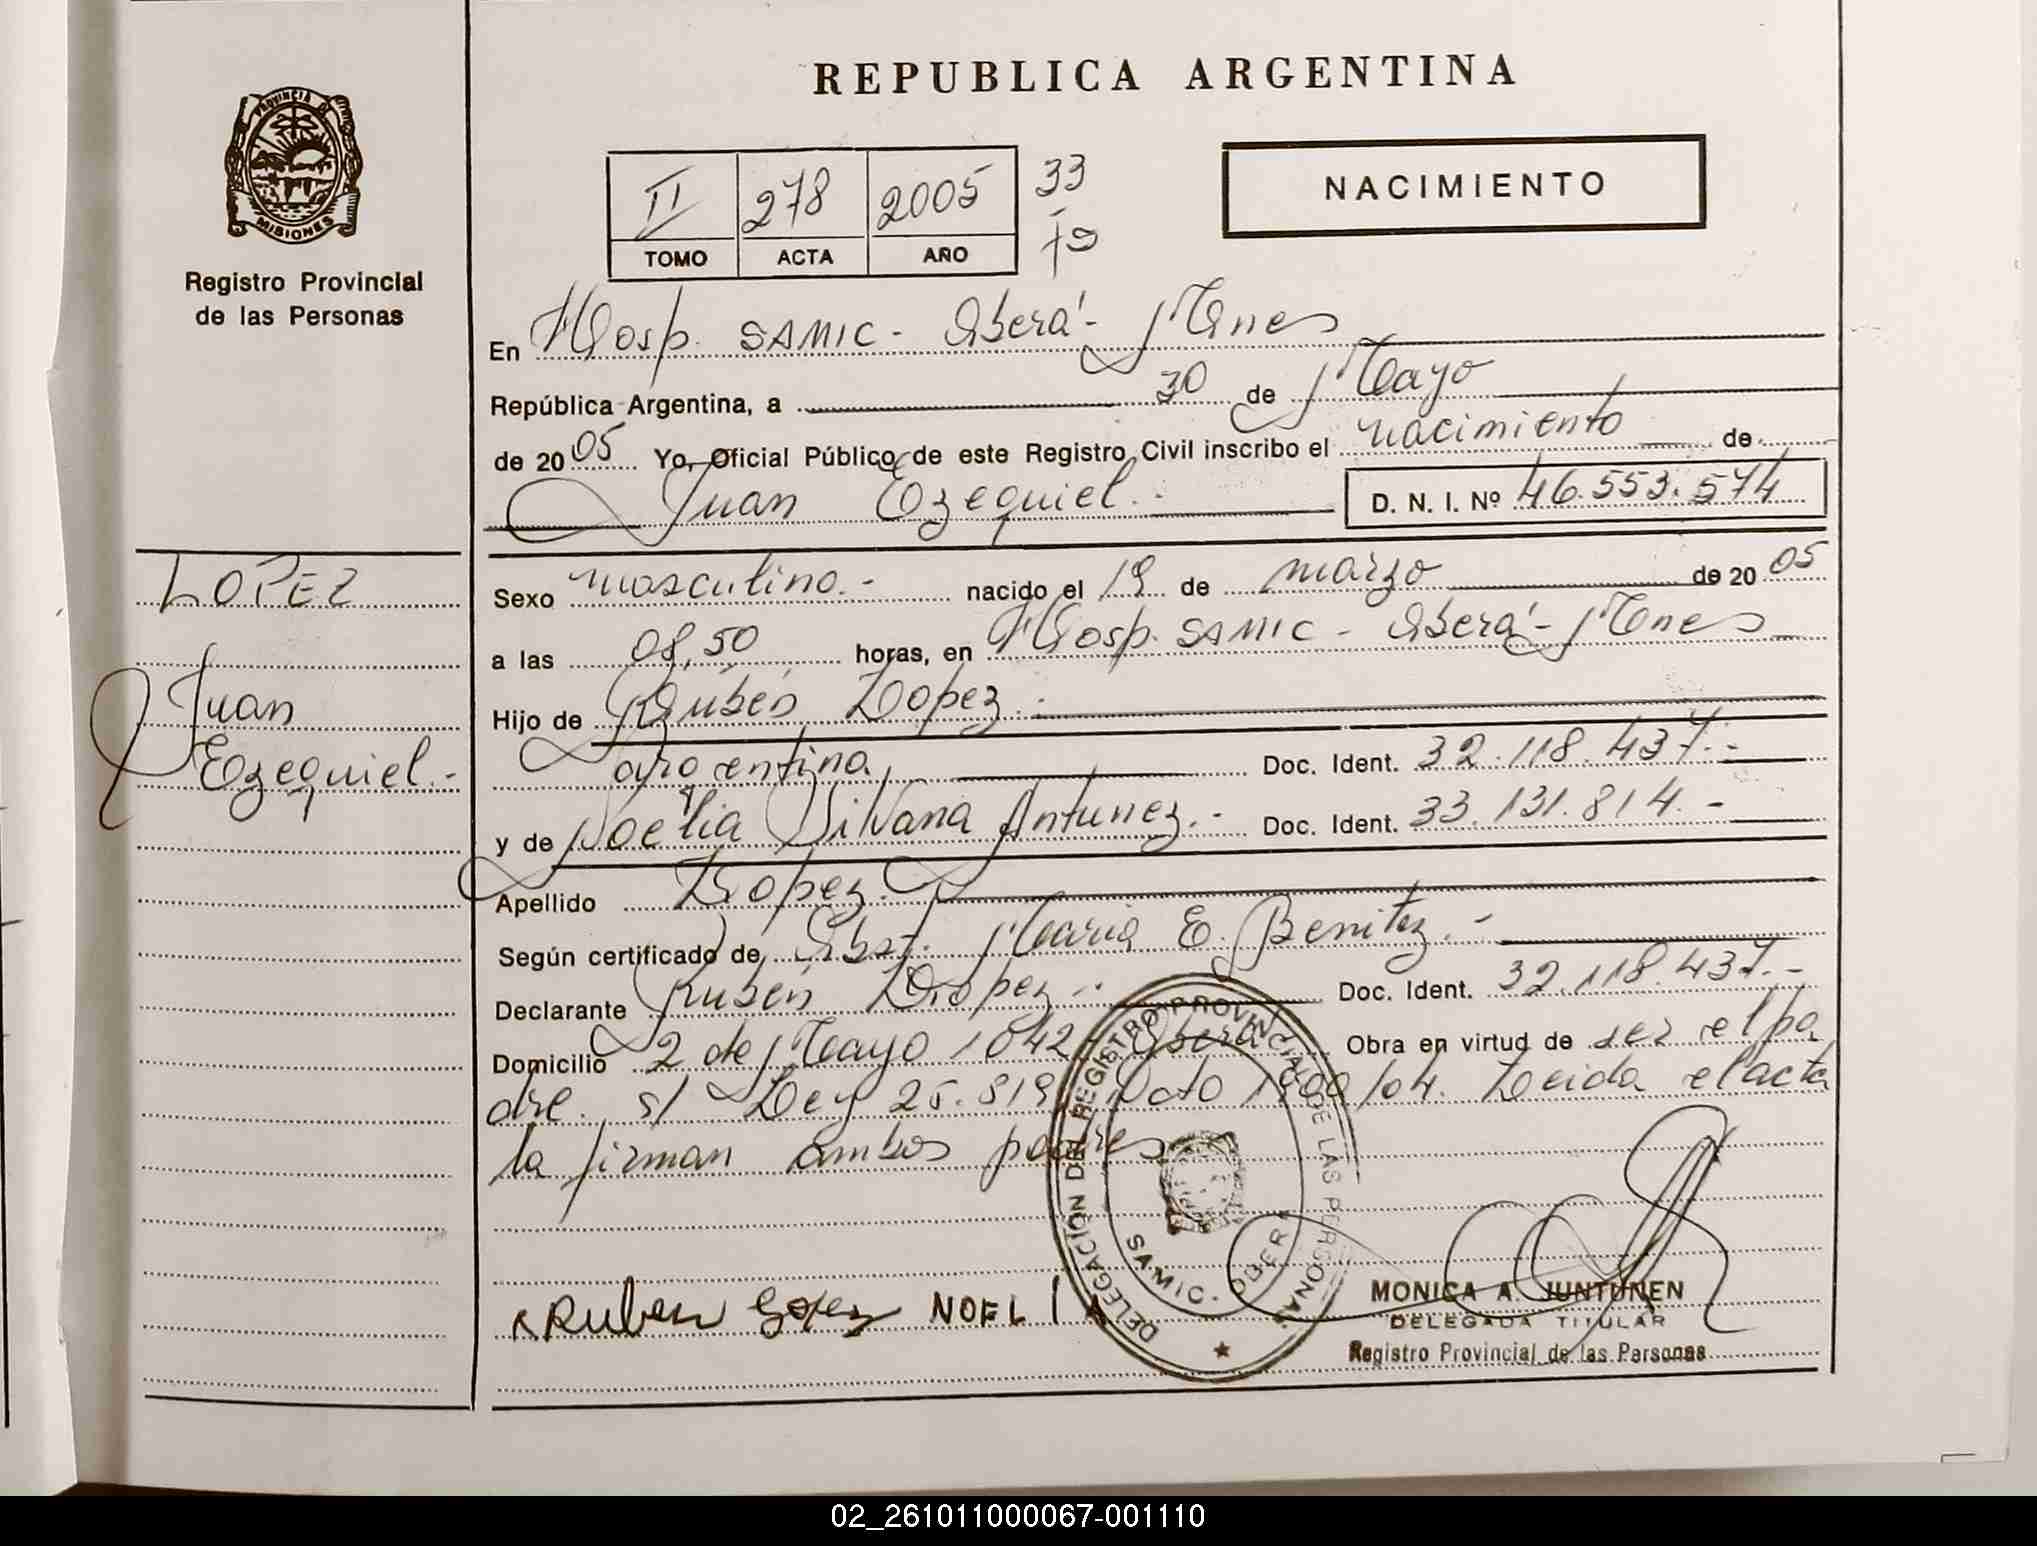 REPUBLICA ARGENTINA
PROVINCIA DE
MISIONES
Registro Provincial
de las Personas
II 278 2005 33
TOMO ACTA AÑO
NACIMIENTO
En Hosp. SAMIC - Oberá - Mnes
República Argentina, a 30 de Mayo
de 2005 Yo, Oficial Público de este Registro Civil inscribo el nacimiento de
Juan Ezequiel.- D. N. I. Nº 46.553.574
LOPEZ
Juan
Ezequiel.-
Sexo masculino.- nacido el 19 de marzo de 2005
a las 08,50 horas, en Hosp. SAMIC - Oberá - Mnes
Hijo de Rubén Lopez.-
argentina Doc. Ident. 32.118.437.-
y de Noelia Silvana Antunez.- Doc. Ident. 33.131.814.-
Apellido Lopez.
Según certificado de Obst. Maria E. Benitez.-
Declarante Rubén Lopez.- Doc. Ident. 32.118.437.-
Domicilio 2 de Mayo 1042 - Oberá Obra en virtud de ser el pa
dre. s/ Ley 25.819 Dcto 1900/04. Leida el acta
la firman ambos padres
DELEGACIÓN DEL REGISTRO PROVINCIAL DE LAS PERSONAS
SAMIC. OBERA
Ruben Lopez NOELIA
MONICA A. JUNTUNEN
DELEGADA TITULAR
Registro Provincial de las Personas
02_261011000067-001110